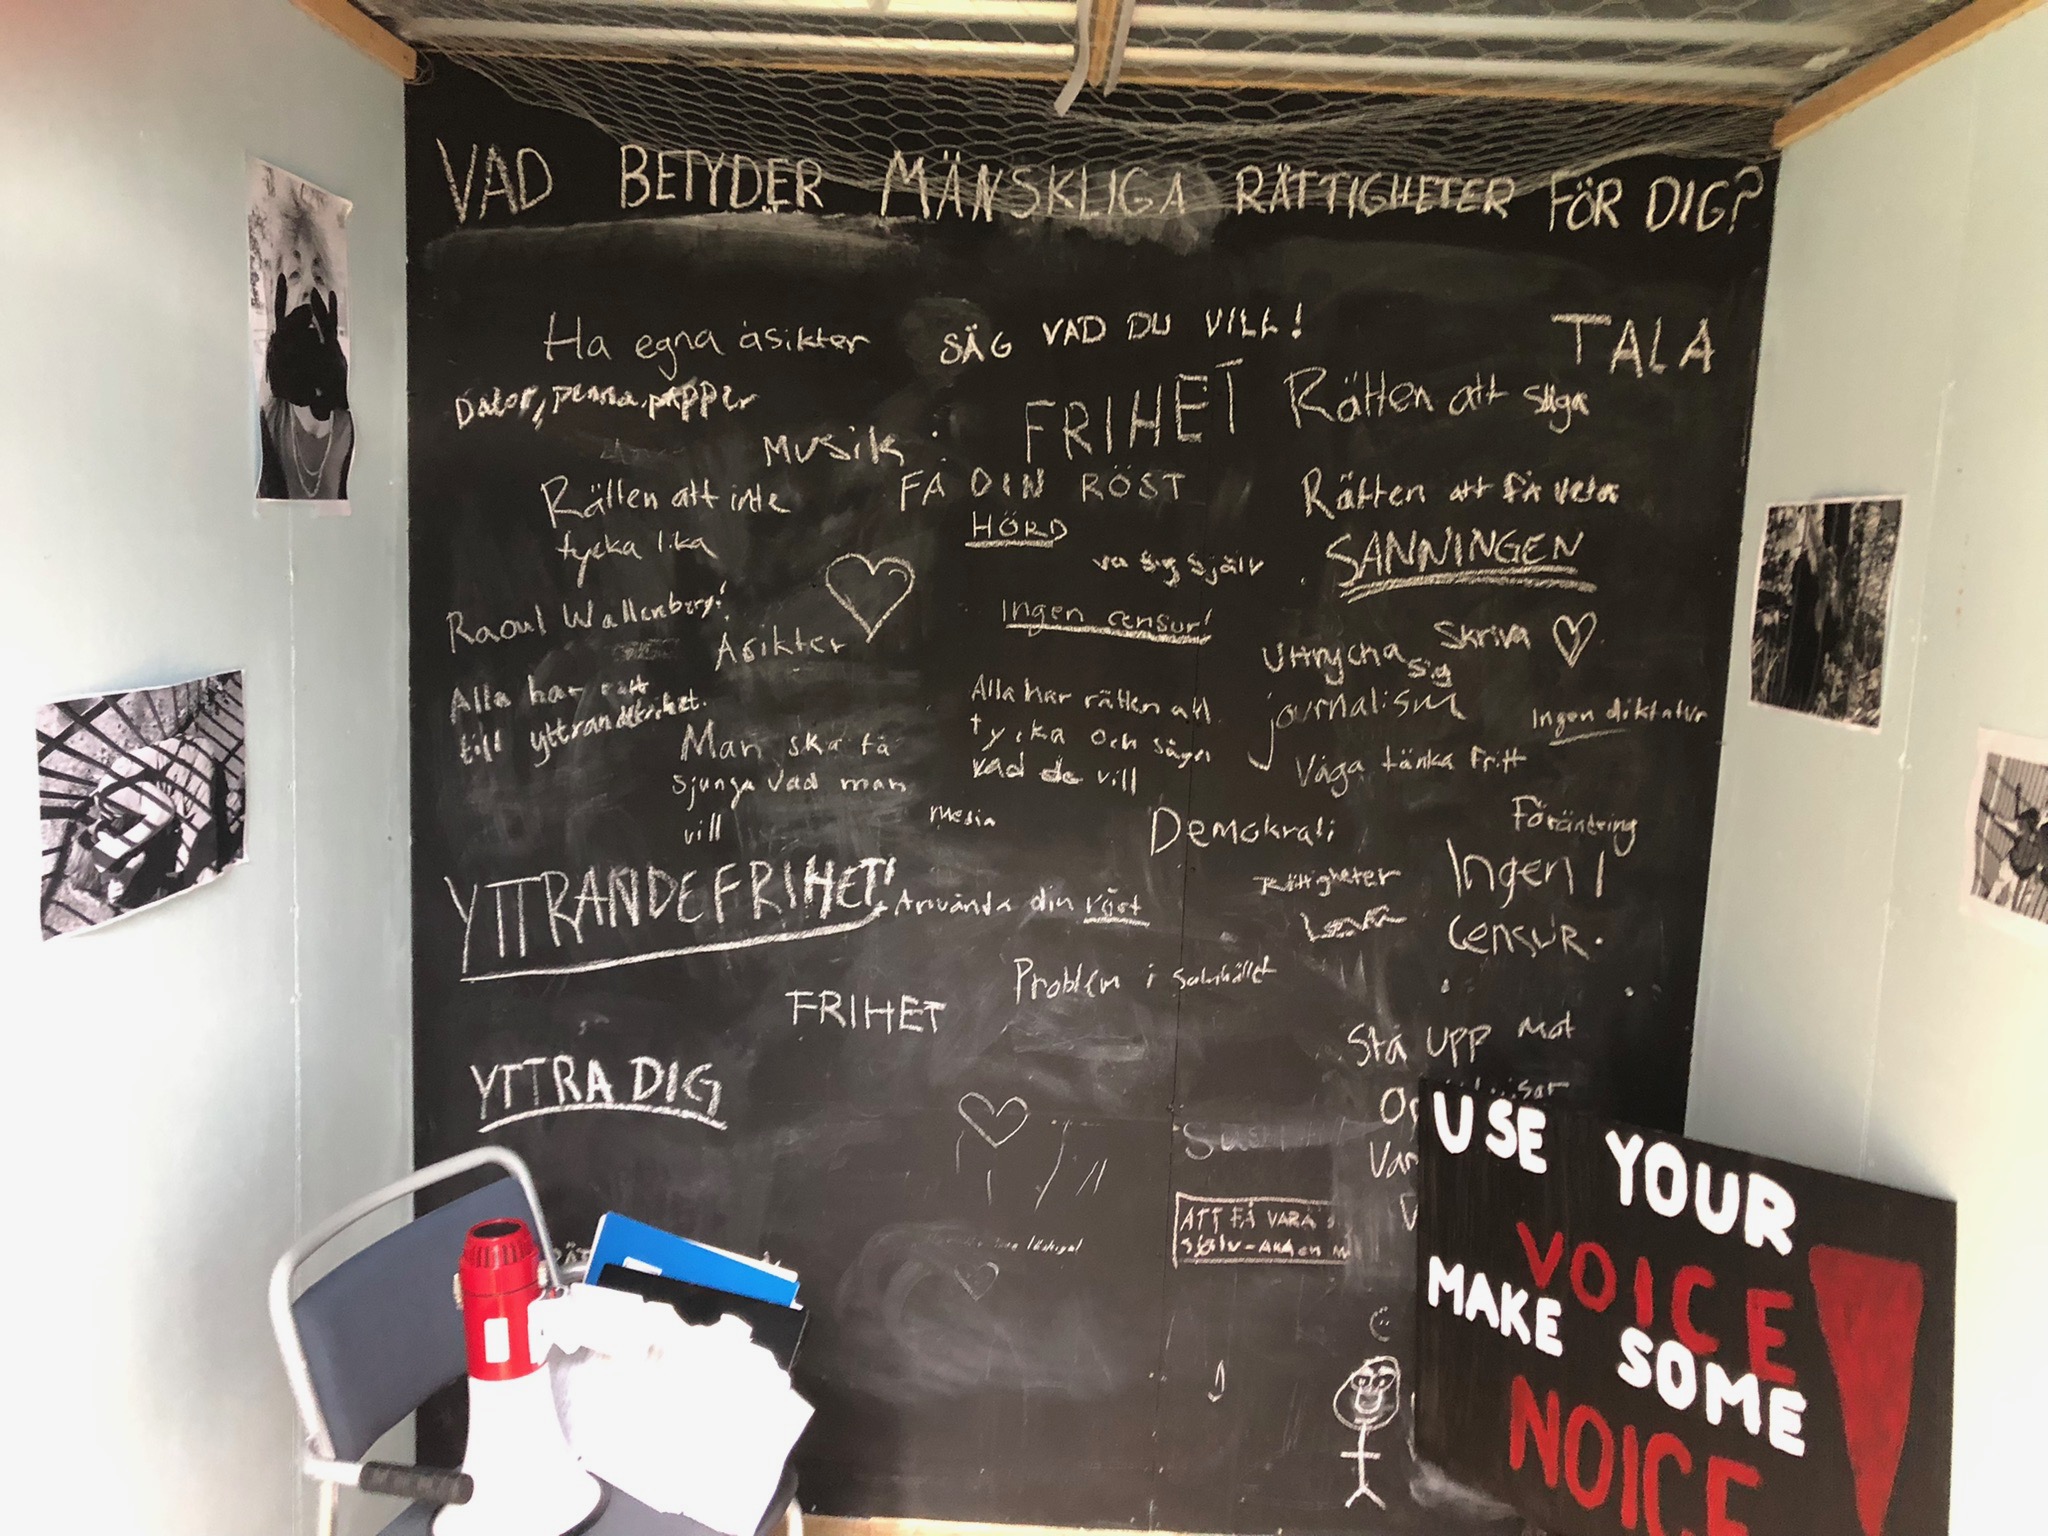 VAD BETYDER MÄNSKLIGA RÄTTIGHETER FÖR DIG?
Ha egna åsikter
SÄG VAD DU VILL!
TALA
Dator, penna, papper
FRIHET
Rätten att säga
Musik
FÅ DIN RÖST
HÖRD
Rätten att inte
tycka lika
Rätten att få veta
SANNINGEN
va sig själv
Raoul Wallenberg!
Åsikter
Ingen censur!
Uttrycka
sig
Skriva
Alla har rätt
till yttrandefrihet.
Alla har rätten att
tycka och säga
vad de vill
journalism
Ingen diktatur
Man ska få
sjunga vad man
vill
Våga tänka fritt
Media
Demokrati
Förändring
YTTRANDEFRIHET!
Använda din röst
Rättigheter
Ingen
censur.
Problem i samhället
FRIHET
Stå upp mot
YTTRA DIG
ATT FÅ VARA
själv
USE YOUR
VOICE
MAKE SOME
NOICE